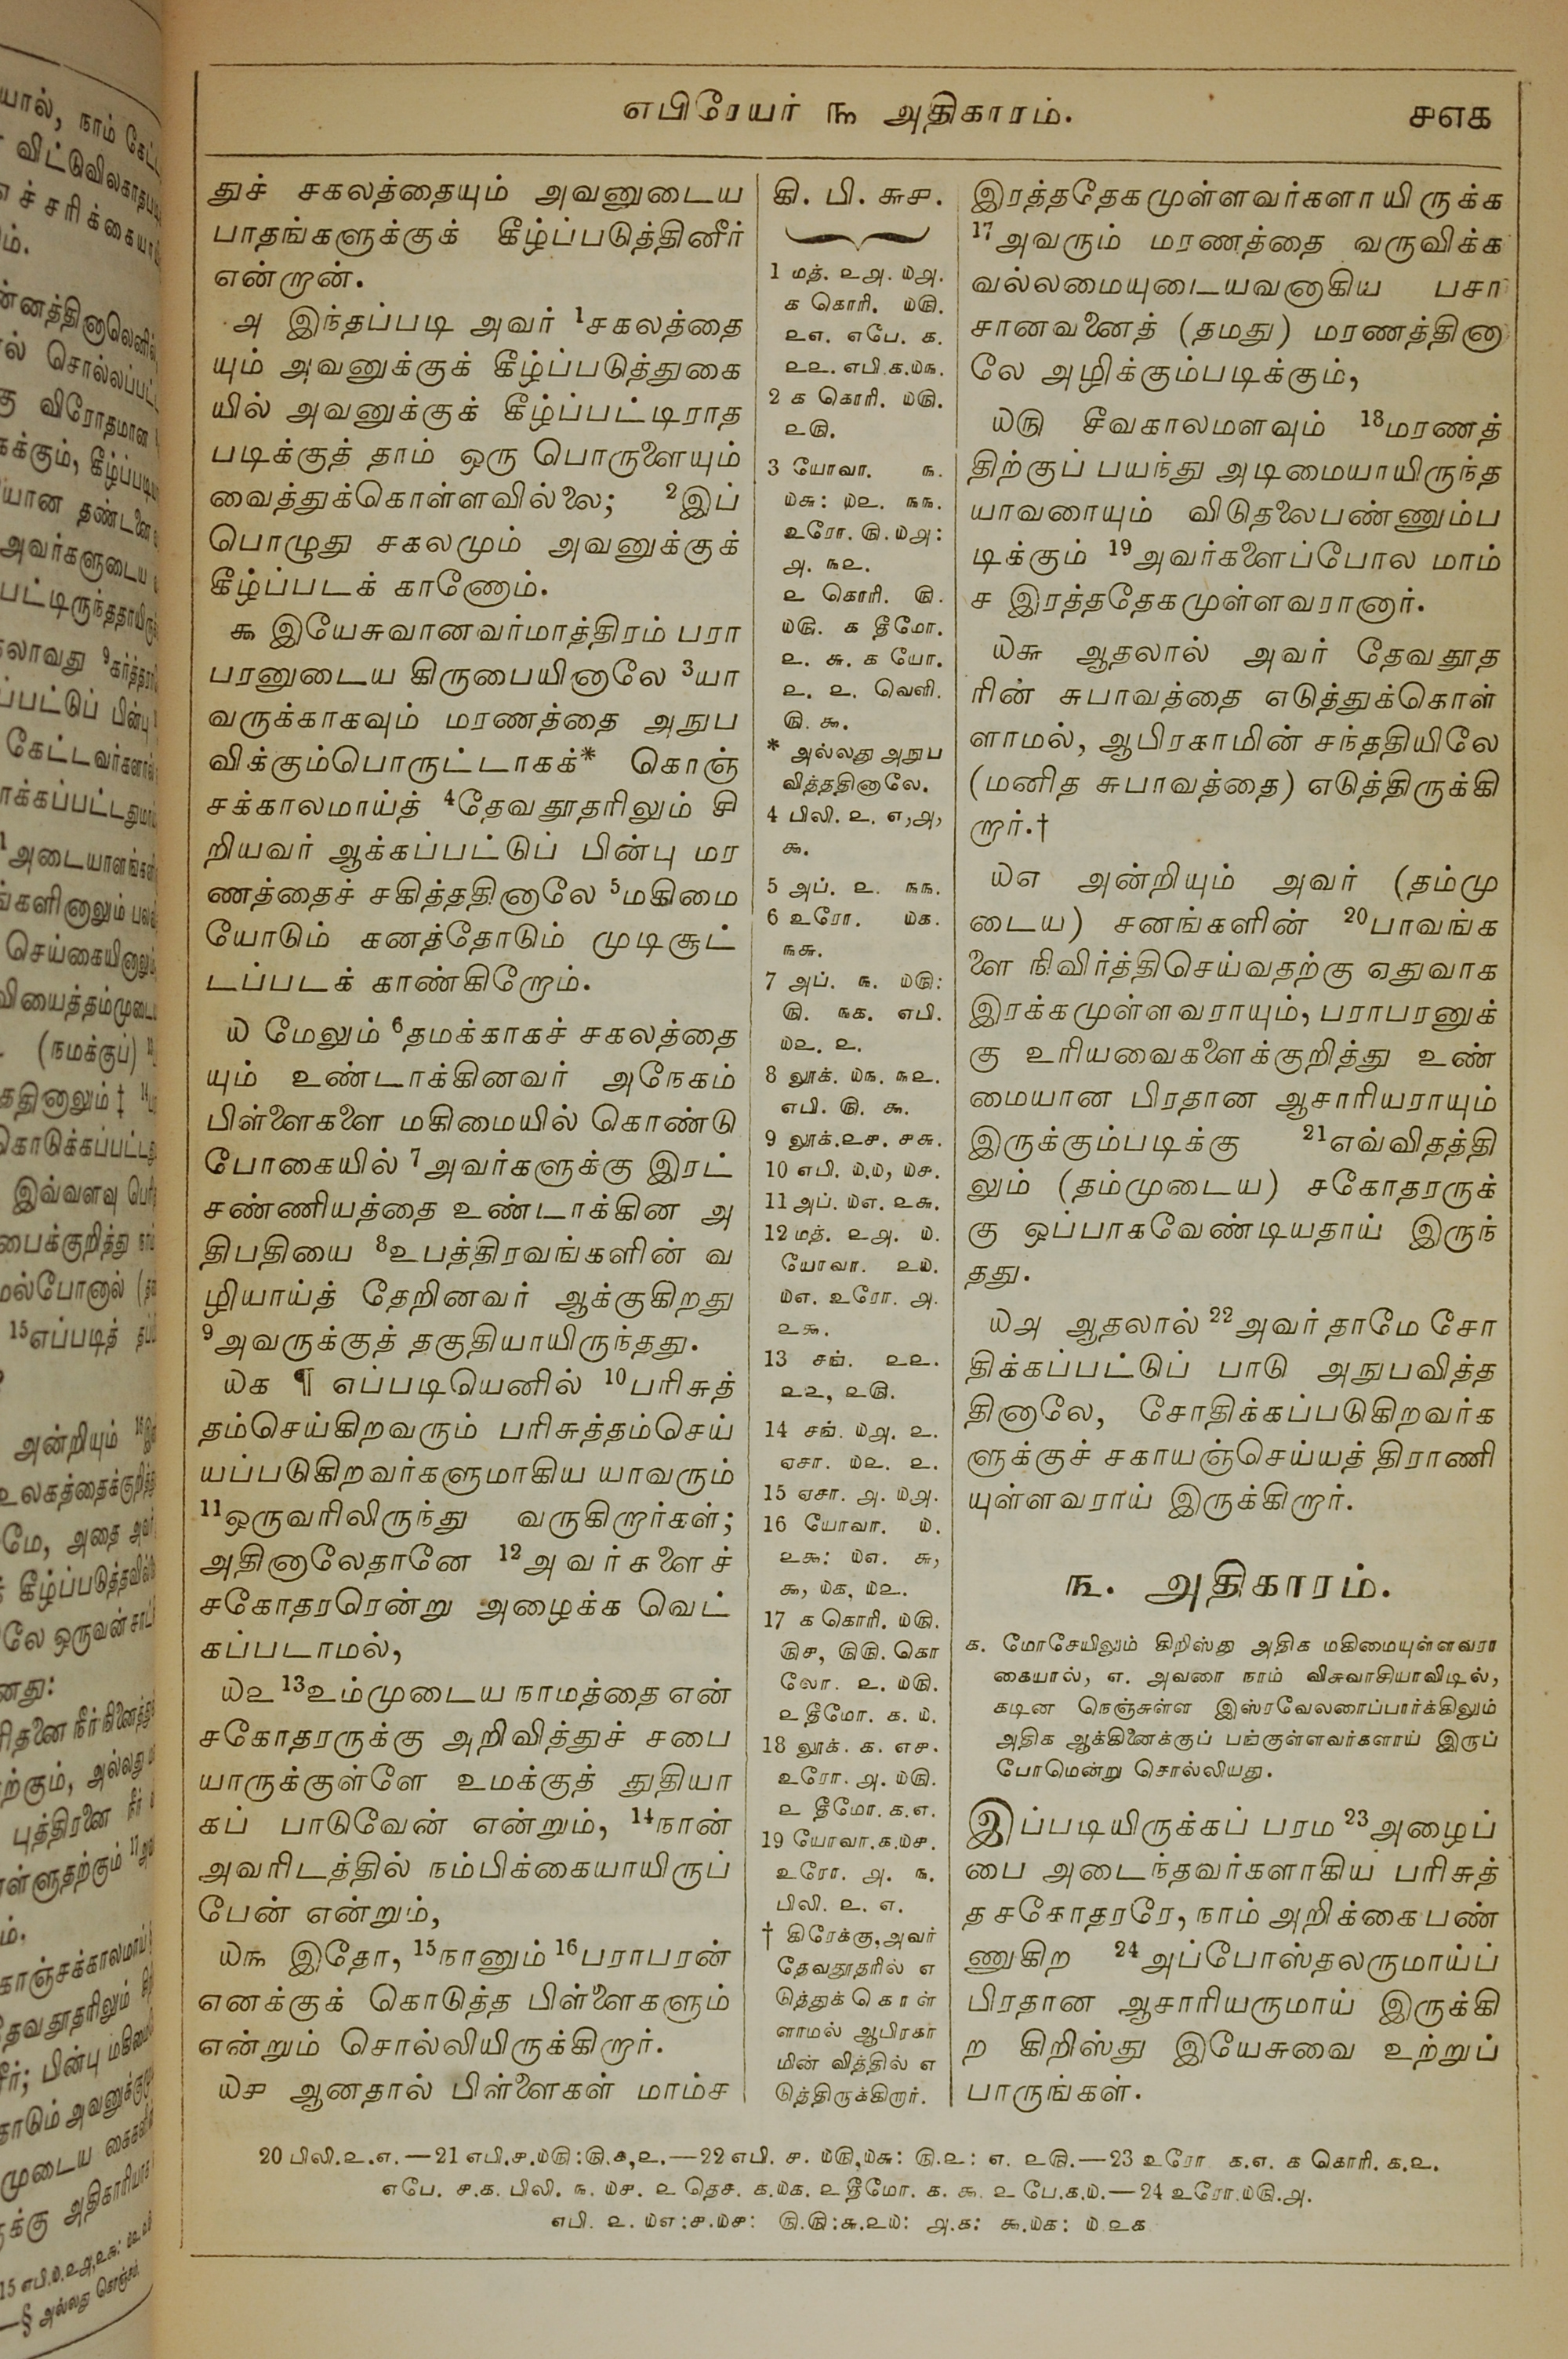 எபிரேயர் ௩ அதிகாரம்.
௪௭௧
துச் சகலத்தையும் அவனுடைய
பாதங்களுக்குக் கீழ்ப்படுத்தினீர்
என்றான்.
௮ இந்தப்படி அவர் 1சகலத்தை
யும் அவனுக்குக் கீழ்ப்படுத்துகை
யில் அவனுக்குக் கீழ்ப்பட்டிராத
படிக்குத் தாம் ஒரு பொருளையும்
வைத்துக்கொள்ளவில்லை; 2இப்
பொழுது சகலமும் அவனுக்குக்
கீழ்ப்படக் காணோம்.
௯ இயேசுவானவர்மாத்திரம் பரா
பரனுடைய கிருபையினாலே 3யா
வருக்காகவும் மரணத்தை அநுப
விக்கும்பொருட்டாகக்* கொஞ்
சக்காலமாய்த் 4தேவதூதரிலும் சி
றியவர் ஆக்கப்பட்டுப் பின்பு மர
ணத்தைச் சகித்ததினாலே 5மகிமை
யோடும் கனத்தோடும் முடிசூட்
டப்படக் காண்கிறோம்.
௰ மேலும் 6தமக்காகச் சகலத்தை
யும் உண்டாக்கினவர் அநேகம்
பிள்ளைகளை மகிமையில் கொண்டு
போகையில் 7அவர்களுக்கு இரட்
சண்ணியத்தை உண்டாக்கின அ
திபதியை 8உபத்திரவங்களின் வ
ழியாய்த் தேறினவர் ஆக்குகிறது
9அவருக்குத் தகுதியாயிருந்தது.
௰௧ ¶ எப்படியெனில் 10பரிசுத்
தம்செய்கிறவரும் பரிசுத்தம்செய்
யப்படுகிறவர்களுமாகிய யாவரும்
11ஒருவரிலிருந்து வருகிறார்கள்;
அதினாலேதானே 12அவர்களைச்
சகோதரரென்று அழைக்க வெட்
கப்படாமல்,
௰௨ 13உம்முடைய நாமத்தை என்
சகோதரருக்கு அறிவித்துச் சபை
யாருக்குள்ளே உமக்குத் துதியா
கப் பாடுவேன் என்றும், 14நான்
அவரிடத்தில் நம்பிக்கையாயிருப்
பேன் என்றும்,
௰௩ இதோ, 15நானும் 16பராபரன்
எனக்குக் கொடுத்த பிள்ளைகளும்
என்றும் சொல்லியிருக்கிறார்.
௰௪ ஆனதால் பிள்ளைகள் மாம்ச
கி. பி. ௬௪.
1 மத். ௨௮. ௰௮.
௧ கொரி. ௰௫.
௨௭. எபே. ௧.
௨௨. எபி.௧.௰௩.
2 ௧ கொரி. ௰௫.
௨௫.
3 யோவா. ௩.
௰௬: ௰௨. ௩௩.
உரோ. ௫.௰௮:
௮. ௩௨.
௨ கொரி. ௫.
௰௫. ௧ தீமோ.
௨. ௬. ௧ யோ.
௨. ௨. வெளி.
௫. ௯.
* அல்லது அநுப
வித்ததினாலே.
4 பிலி. ௨. ௭,௮,
௯.
5 அப். ௨. ௩௩.
6 உரோ. ௰௧.
௩௬.
7 அப். ௩. ௰௫:
௫. ௩௧. எபி.
௰௨. ௨.
8 லூக். ௰௩. ௩௨.
எபி. ௫. ௯.
9 லூக்.௨௪. ௪௬.
10 எபி. ௰.௰, ௰௪.
11 அப். ௰௭. ௨௬.
12 மத். ௨௮. ௰.
யோவா. ௨௰.
௰௭. உரோ. ௮.
௨௯.
13 சங். ௨௨.
௨௨, ௨௫.
14 சங். ௰௮. ௨.
ஏசா. ௰௨. ௨.
15 ஏசா. ௮. ௰௮.
16 யோவா. ௰.
௨௯: ௰௭. ௬,
௯, ௰௧, ௰௨.
17 ௧ கொரி. ௰௫.
௫௪, ௫௫. கொ
லோ. ௨. ௰௫.
௨ தீமோ. ௧. ௰.
18 லூக். ௧. ௭௪.
உரோ. ௮. ௰௫.
௨ தீமோ. ௧.௭.
19 யோவா.௧.௰௪.
உரோ. ௮. ௩.
பிலி. ௨. ௭.
† கிரேக்கு, அவர்
தேவதூதரில் எ
டுத்துக்கொள்
ளாமல் ஆபிரகா
மின் வித்தில் எ
டுத்திருக்கிறார்.
இரத்ததேகமுள்ளவர்களாயிருக்க
17அவரும் மரணத்தை வருவிக்க
வல்லமையுடையவனாகிய பசா
சானவனைத் (தமது) மரணத்தினா
லே அழிக்கும்படிக்கும்,
௰௫ சீவகாலமளவும் 18மரணத்
திற்குப் பயந்து அடிமையாயிருந்த
யாவரையும் விடுதலைபண்ணும்ப
டிக்கும் 19அவர்களைப்போல மாம்
ச இரத்ததேகமுள்ளவரானார்.
௰௬ ஆதலால் அவர் தேவதூத
ரின் சுபாவத்தை எடுத்துக்கொள்
ளாமல், ஆபிரகாமின் சந்ததியிலே
(மனித சுபாவத்தை) எடுத்திருக்கி
றார்.†
௰௭ அன்றியும் அவர் (தம்மு
டைய) சனங்களின் 20பாவங்க
ளை நிவிர்த்திசெய்வதற்கு ஏதுவாக
இரக்கமுள்ளவராயும், பராபரனுக்
கு உரியவைகளைக்குறித்து உண்
மையான பிரதான ஆசாரியராயும்
இருக்கும்படிக்கு 21எவ்விதத்தி
லும் (தம்முடைய) சகோதரருக்
கு ஒப்பாகவேண்டியதாய் இருந்
தது.
௰௮ ஆதலால் 22அவர்தாமே சோ
திக்கப்பட்டுப் பாடு அநுபவித்த
தினாலே, சோதிக்கப்படுகிறவர்க
ளுக்குச் சகாயஞ்செய்யத் திராணி
யுள்ளவராய் இருக்கிறார்.
௩. அதிகாரம்.
௧. மோசேயிலும் கிறிஸ்து அதிக மகிமையுள்ளவரா
கையால், ௭. அவரை நாம் விசுவாசியாவிடில்,
கடின நெஞ்சுள்ள இஸ்ரவேலரைப்பார்க்கிலும்
அதிக ஆக்கினைக்குப் பங்குள்ளவர்களாய் இருப்
போமென்று சொல்லியது.
இப்படியிருக்கப் பரம 23அழைப்
பை அடைந்தவர்களாகிய பரிசுத்
த சகோதரரே, நாம் அறிக்கைபண்
ணுகிற 24அப்போஸ்தலருமாய்ப்
பிரதான ஆசாரியருமாய் இருக்கி
ற கிறிஸ்து இயேசுவை உற்றுப்
பாருங்கள்.
20 பிலி.௨.௭.—21 எபி.௪.௰௫:௫.௧,௨.—22 எபி. ௪. ௰௫,௰௬: ௫.௨: ௭. ௨௫.—23 உரோ ௧.௭. ௧ கொரி. ௧.௨.
எபே. ௪.௧. பிலி. ௩. ௰௪. ௨ தெச. ௧.௰௧. ௨ தீமோ. ௧. ௯. ௨ பே.௧.௰.—24 உரோ.௰௫.௮.
எபி. ௨. ௰௭:௪.௰௪: ௫.௫:௬.௨௰: ௮.௧: ௯.௰௧: ௰ ௨௧